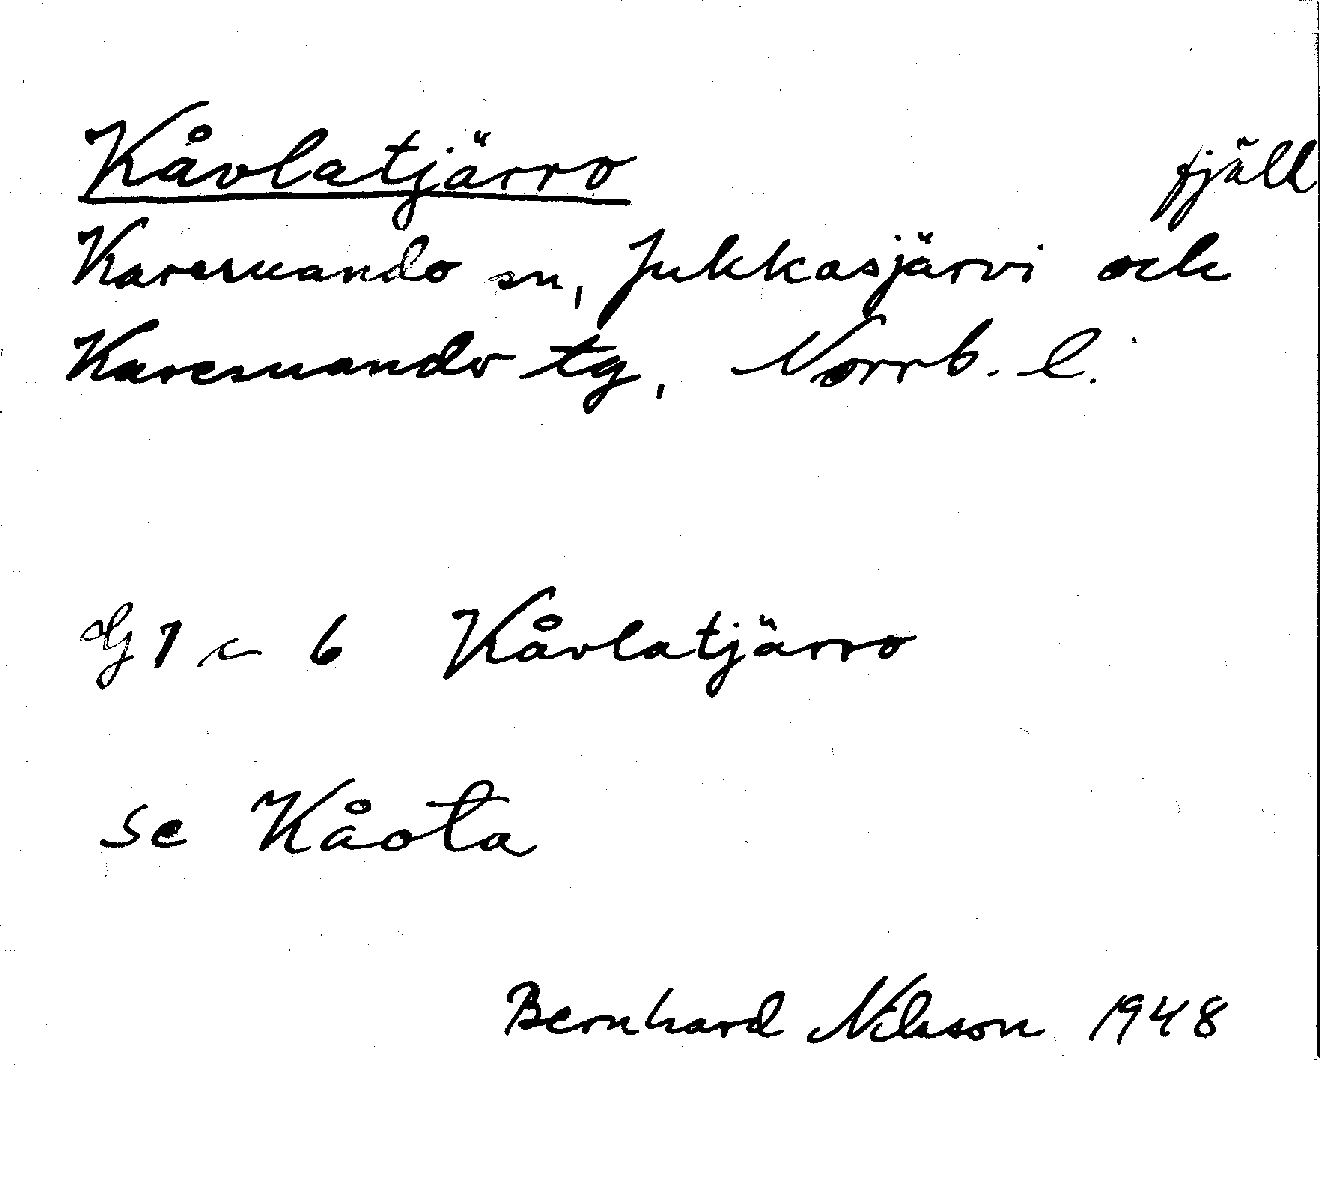 Kåvlatjärro fjäll
Karesuando sn, Jukkasjärvi och
Karesuando tg, Norrb. l.
dG 1 c 6 Kåvlatjärro
se Kåota
Bernhard Nilsson 1948